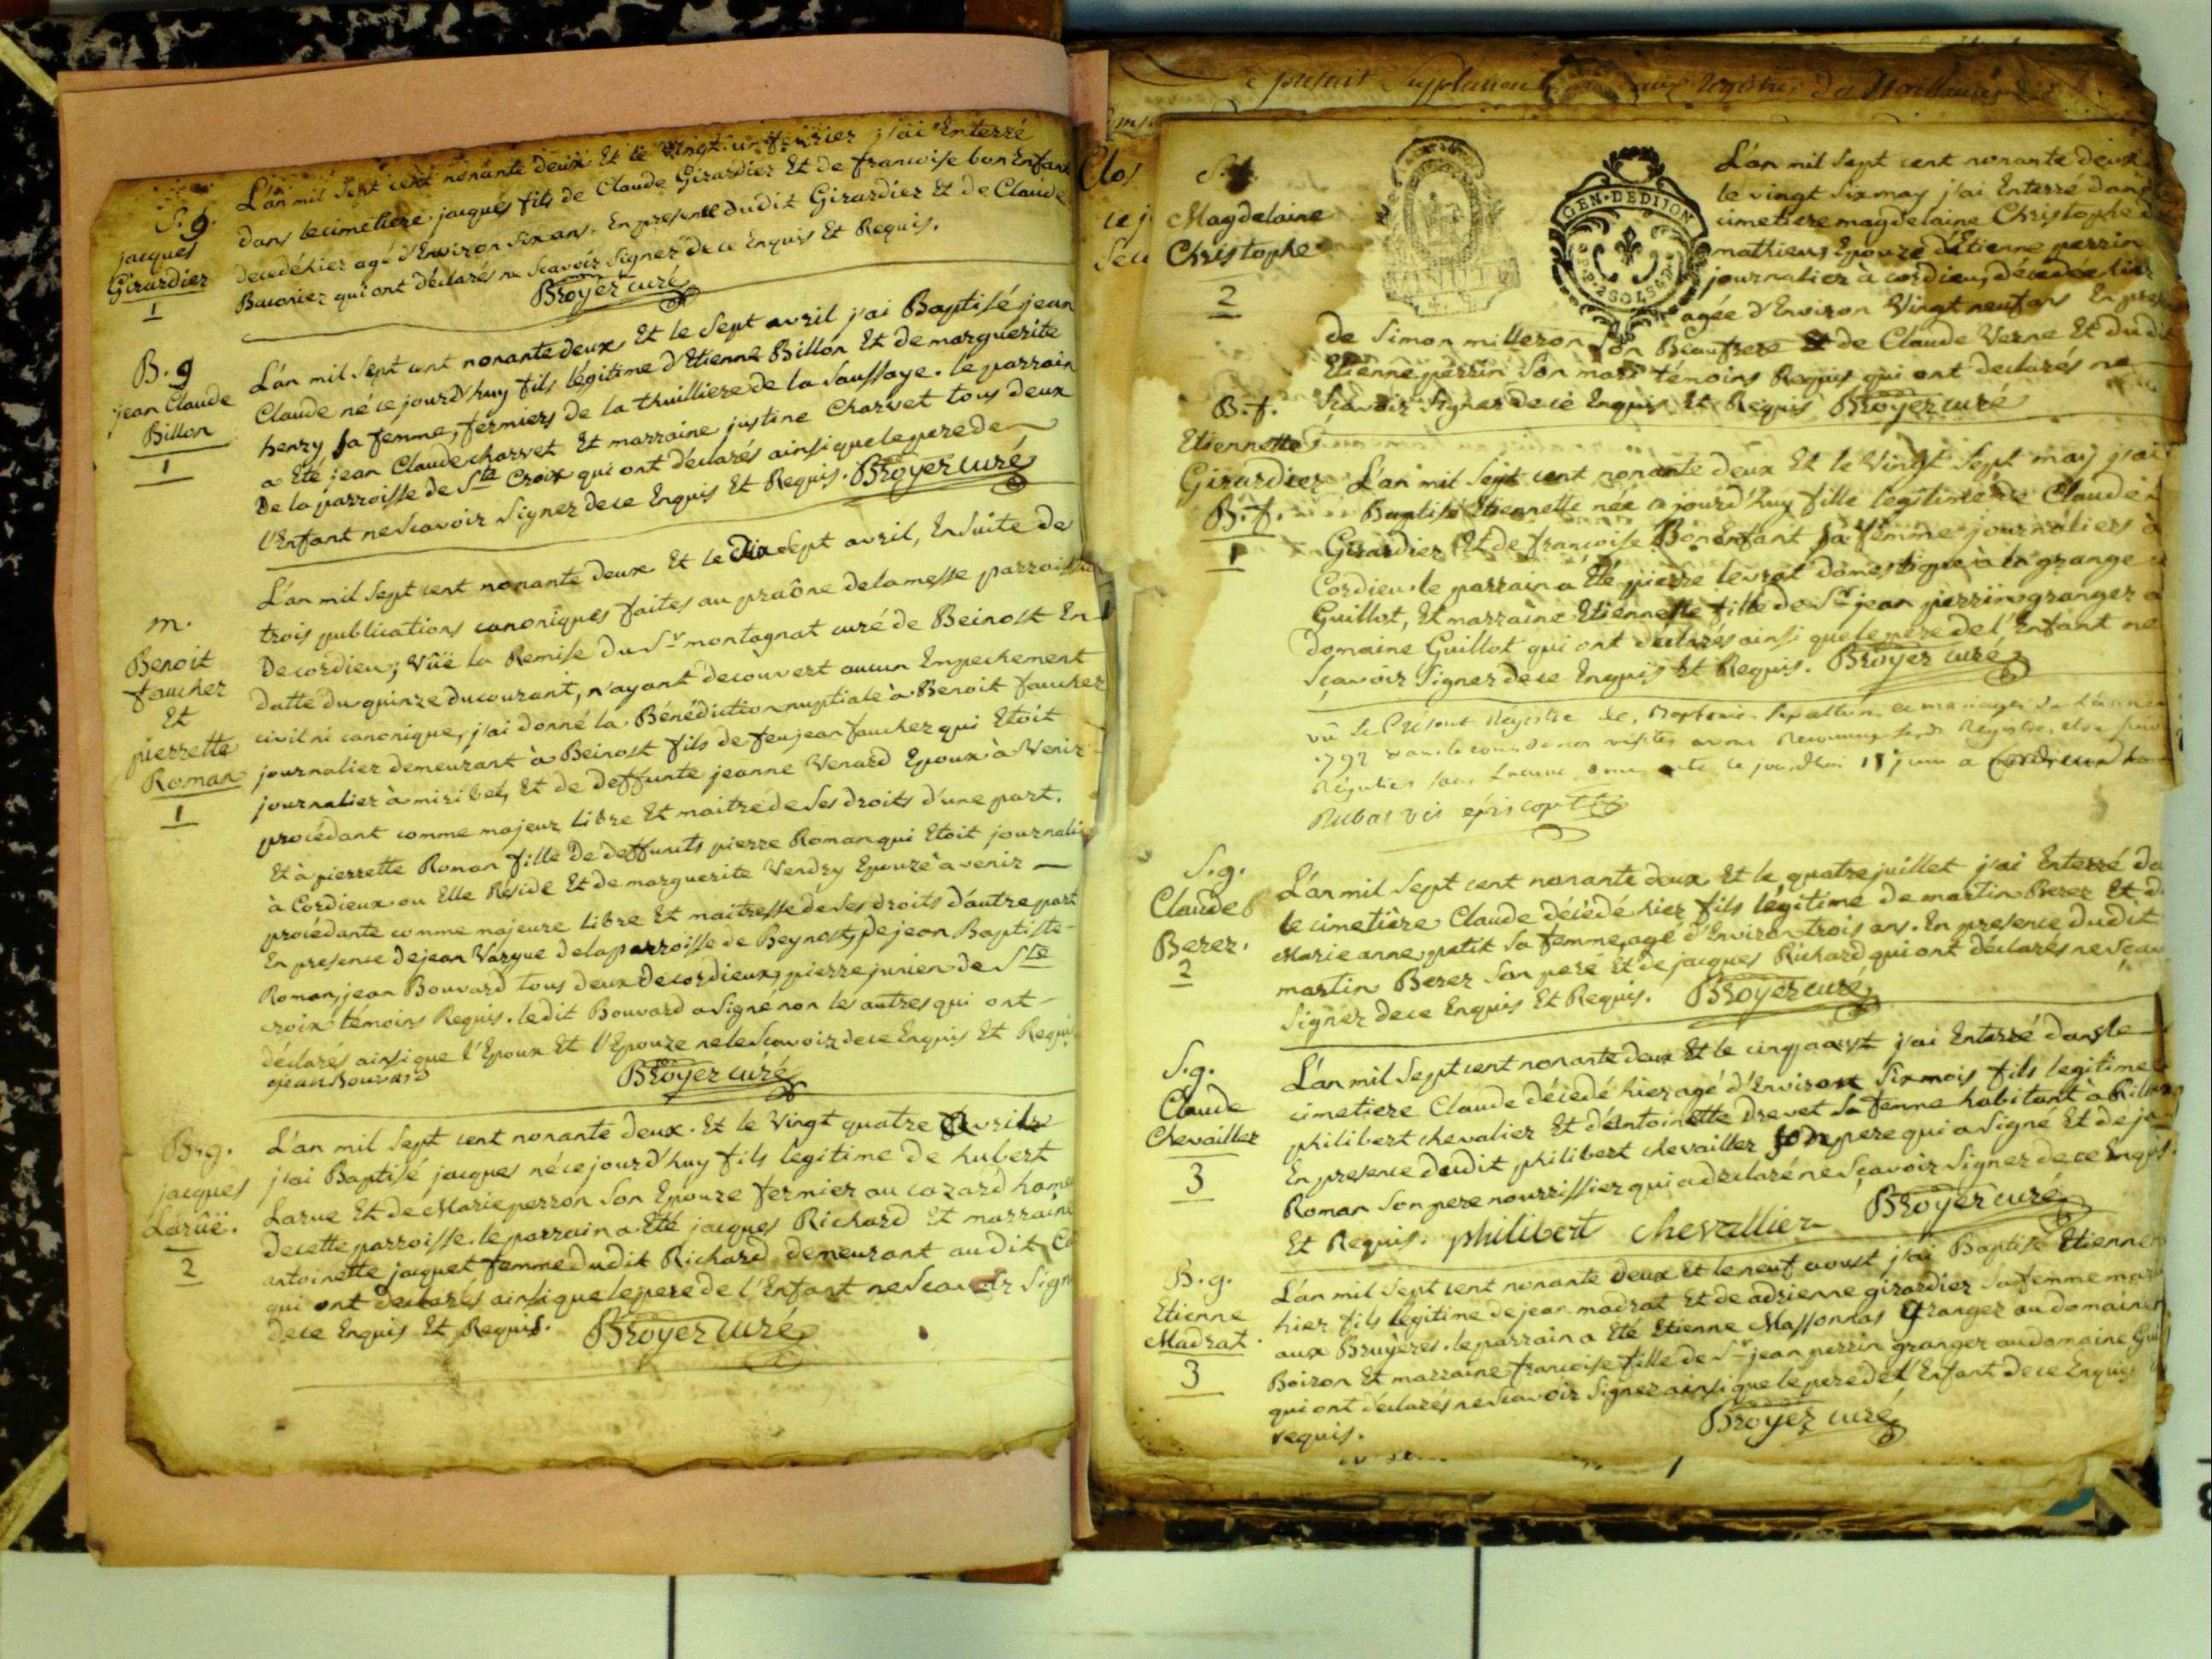 S. g.
jacques
Girardier
1
L'an mil Sept cent nonante deux Et le vingt un fevrier j'ai Enterré
dans le cimetiere jacques fils de Claude Girardier Et de francoise bon Enfant
decedé hier agé d'Environ Six ans. En presence dudit Girardier Et de Claude
qui ont déclarés ne Scavoir Signer de ce Enquis Et Requis.
Broyer curé
B. g
jean Claude
Billon
1
L'an mil Sept cent nonante deux Et le Sept avril j'ai Baptisé jean
Claude né ce jourd'huy fils légitime d'Etienne Billon Et de marguerite
henry Sa femme, fermiers de la thuilliere de la Saussaye. le parrain
a Eté jean Claude charvet Et marraine justine Charvet tous deux
De la parroisse de Ste Croix qui ont déclarés ainsi que le pere de
l'Enfant ne Scavoir Signer de ce Enquis Et Requis. Broyer curé
m.
Benoit
faucher
Et
pierrette
Roman
1
L'an mil Sept cent nonante deux Et le Dix Sept avril, Ensuite de
trois publications canoniques faites au prône de la messe parroissiale
De cordieu; Vûe la Remise du Sr montagnat curé de Beinost En
datte du quinze du courant, n'ayant decouvert aucun Empechement
civil ni canonique, j'ai donné la Bénédiction nuptiale à Benoit faucher
journalier demeurant à Beinost fils de feu jean faucher qui Etoit
journalier à miribel, Et de deffunte jeanne Venard Epoux à Venir
procédant comme majeur Libre Et maitre de Ses droits d'une part.
Et à pierrette Roman fille De deffunts pierre Roman qui Etoit journalier
à Cordieux ou Elle Réside Et de marguerite Vendry Epouze à venir
procédante comme majeure Libre Et maitresse de Ses droits d'autre part
En presence de jean Vargue de la parroisse de Beynost, de jean Baptiste
Roman, jean Bouvard tous deux de cordieux, pierre junien de Ste
croix témoins Requis. ledit Bouvard a Signé non les autres qui ont
déclarés ainsi que l'Epoux Et l'Epouze ne le Scavoir de ce Enquis Et Requis
jean Bouvard Broyer curé
B. g.
jacques
Larüe.
2
L'an mil Sept cent nonante deux. Et le Vingt quatre avril
j'ai Baptisé jacques né ce jourd'huy fils legitime de hubert
Larue Et de Marie perron Son Epouze fermier au cazard hameau
de cette parroisse. le parrain a Eté jacques Richard Et marraine
antoinette jacquet femme dudit Richard demeurant audit
qui ont declarés ainsi que le pere de l'Enfant ne Scavoir Signer
de ce Enquis Et Requis. Broyer curé
present Supplement aux registres de
Clos
Magdelaine
Christophe
2
GEN · DE DIJON
L'an mil Sept cent nonante deux
le vingt Six may j'ai Enterré dans le
cimetiere magdelaine Christophe
mathieu, Epouze d'Etienne perrin
journalier à cordieu, décédée hier
agée d'Environ Vingt neuf ans En presence
de Simon milleron Son Beaufrere Et de Claude Verne Et dudit
Etienne perrin Son mari témoins Requis qui ont declarés ne
Scavoir Signer de ce Enquis Et Requis Broyer curé
B. f.
Etiennette
Girardier
B. f.
1
L'an mil Sept cent nonante deux Et le Vingt Sept may j'ai
Baptisé Etiennette née ce jourd'huy fille legitime de Claude
Girardier Et de francoise Bonenfant Sa femme journaliers à
Cordieu. le parrain a Eté pierre levrat domestique à la grange
Guillot, Et marraine Etiennette fille de Sr jean perrin granger au
domaine Guillot qui ont declarés ainsi que le pere de l'Enfant ne
Scavoir Signer de ce Enquis Et Requis. Broyer curé
vû le Présent Régistre de Baptemes Sepultures et mariages de l'année
1792 dans le cours de nos visites avons
ce jourd'hui 11 juin a Cordieux
S. g.
Claude
Berer.
2
L'an mil Sept cent nonante deux Et le quatre juillet j'ai Enterré dans
le cimetière Claude décédé hier fils légitime de martin Berer Et de
Marie anne petit Sa femme, agé d'Environ trois ans. En presence dudit
martin Berer Son pere Et de jacques Richard qui ont déclarés ne Scavoir
Signer de ce Enquis Et Requis. Broyer curé
S. g.
Claude
Chevallier
3
L'an mil Sept cent nonante deux Et le cinq aoust j'ai Enterré dans le
cimetiere Claude décedé hier agé d'Environ Six mois fils legitime de
philibert chevalier Et d'Antoinette Drevet Sa femme habitant à
En presence dudit philibert chevallier Son pere qui a Signé Et de
Roman Son pere nourrissier qui a declaré ne Scavoir Signer de ce Enquis
Et Requis. philibert chevallier Broyer curé
B. g.
Etienne
Madrat.
3
L'an mil Sept cent nonante deux Et le neuf aoust j'ai Baptisé Etienne né
hier fils légitime de jean madrat Et de adrienne girardier Sa femme
aux Bruyeres. le parrain a Eté Etienne Massonnas Granger au domaine
Boiron Et marraine francoise fille de Sr jean perrin granger au domaine
qui ont déclarés ne Scavoir Signer ainsi que le pere de l'Enfant de ce Enquis
requis. Broyer curé